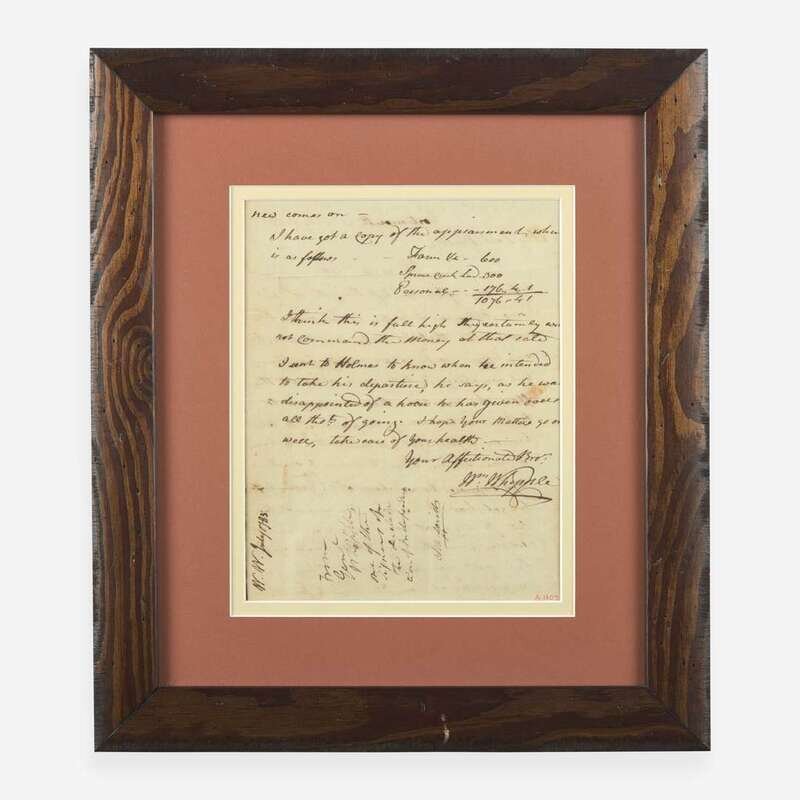 new comes on
I have got a copy of the appraisment, when
is as follows - Farm &c - 600
Spruce Creek Ld. 300
Personal - - 176,,4,,1
1076-41
I think this is full high they certainly wou
not command the money at that sale
I sent to Holmes to know when he intended
to take his departure, he says, as he was
disappointed of a horse he has given over
all thot. of going. I hope your Matters go on
well, take care of your health -
Your Affectionate Bror.
Wm. Whipple
W. W. July 1783
From
Genl.
W. Whipple
one of the
signers of
the declara
tion of Independence
A 1803